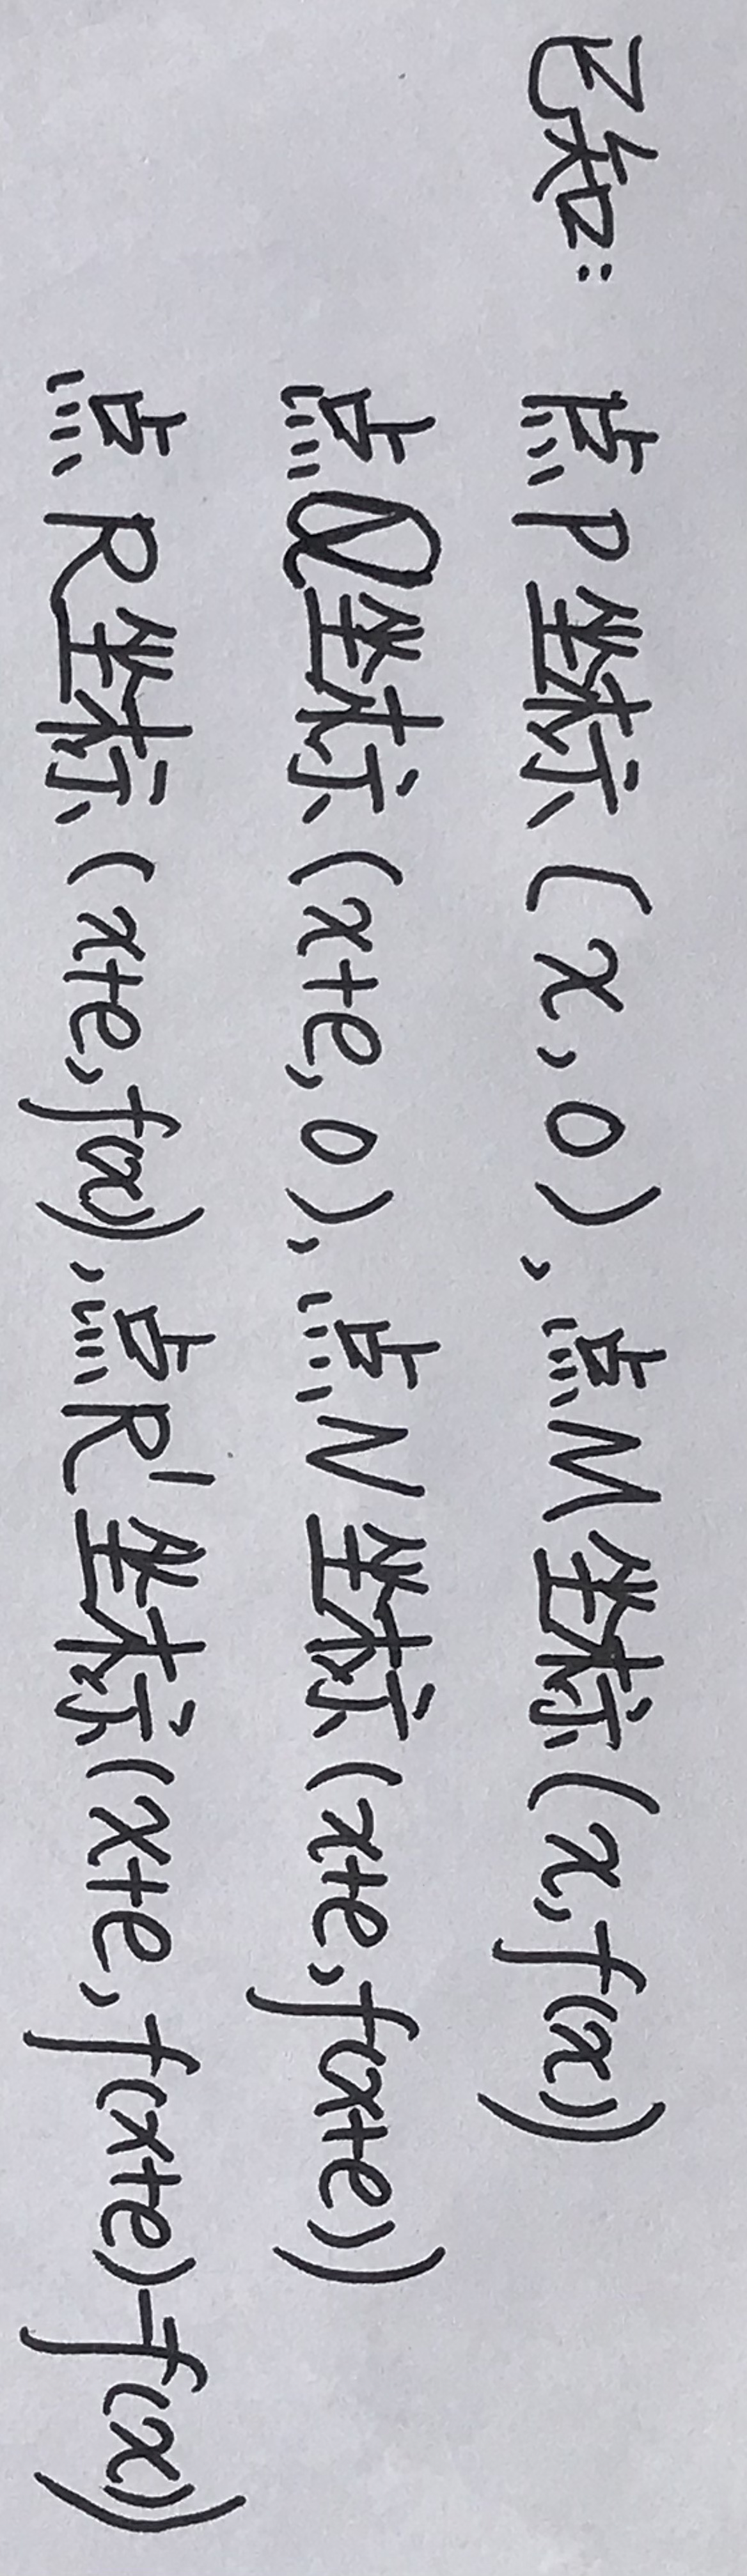 已知: 点P坐标(x,0),点M坐标(x,f(x))
点Q坐标(x+e,0),点N坐标(x+e,f(x+e))
点R坐标(x+e,f(x)),点R'坐标(x+e,f(x+e)-f(x))